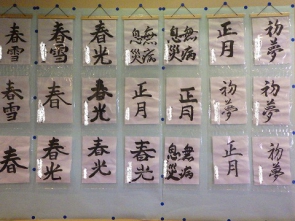 春雪
春雪
春光
無病
息災
無病
息災
正月
初夢
春雪
春
春光
正月
正月
初夢
初夢
春
春光
春光
春光
無病
息災
正月
初夢